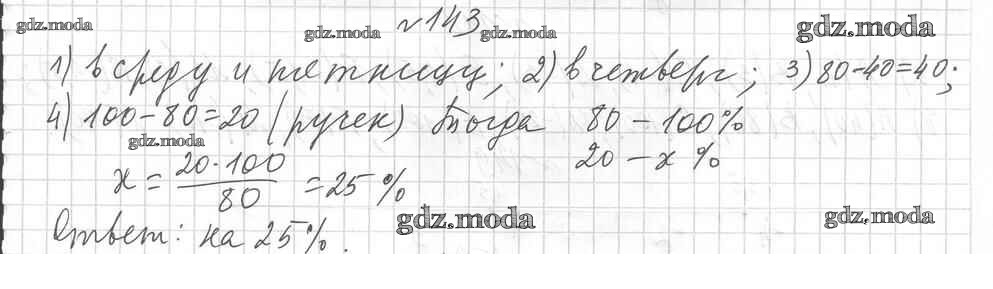 №143
gdz.moda gdz.moda gdz.moda gdz.moda
1) в среду и пятницу; 2) в четверг; 3) 80-40=40;
4) 100-80=20 (ручек) Тогда 80 - 100%
gdz.moda
20 - x %
x = 20·100 / 80 = 25%
gdz.moda gdz.moda
Ответ: на 25%.